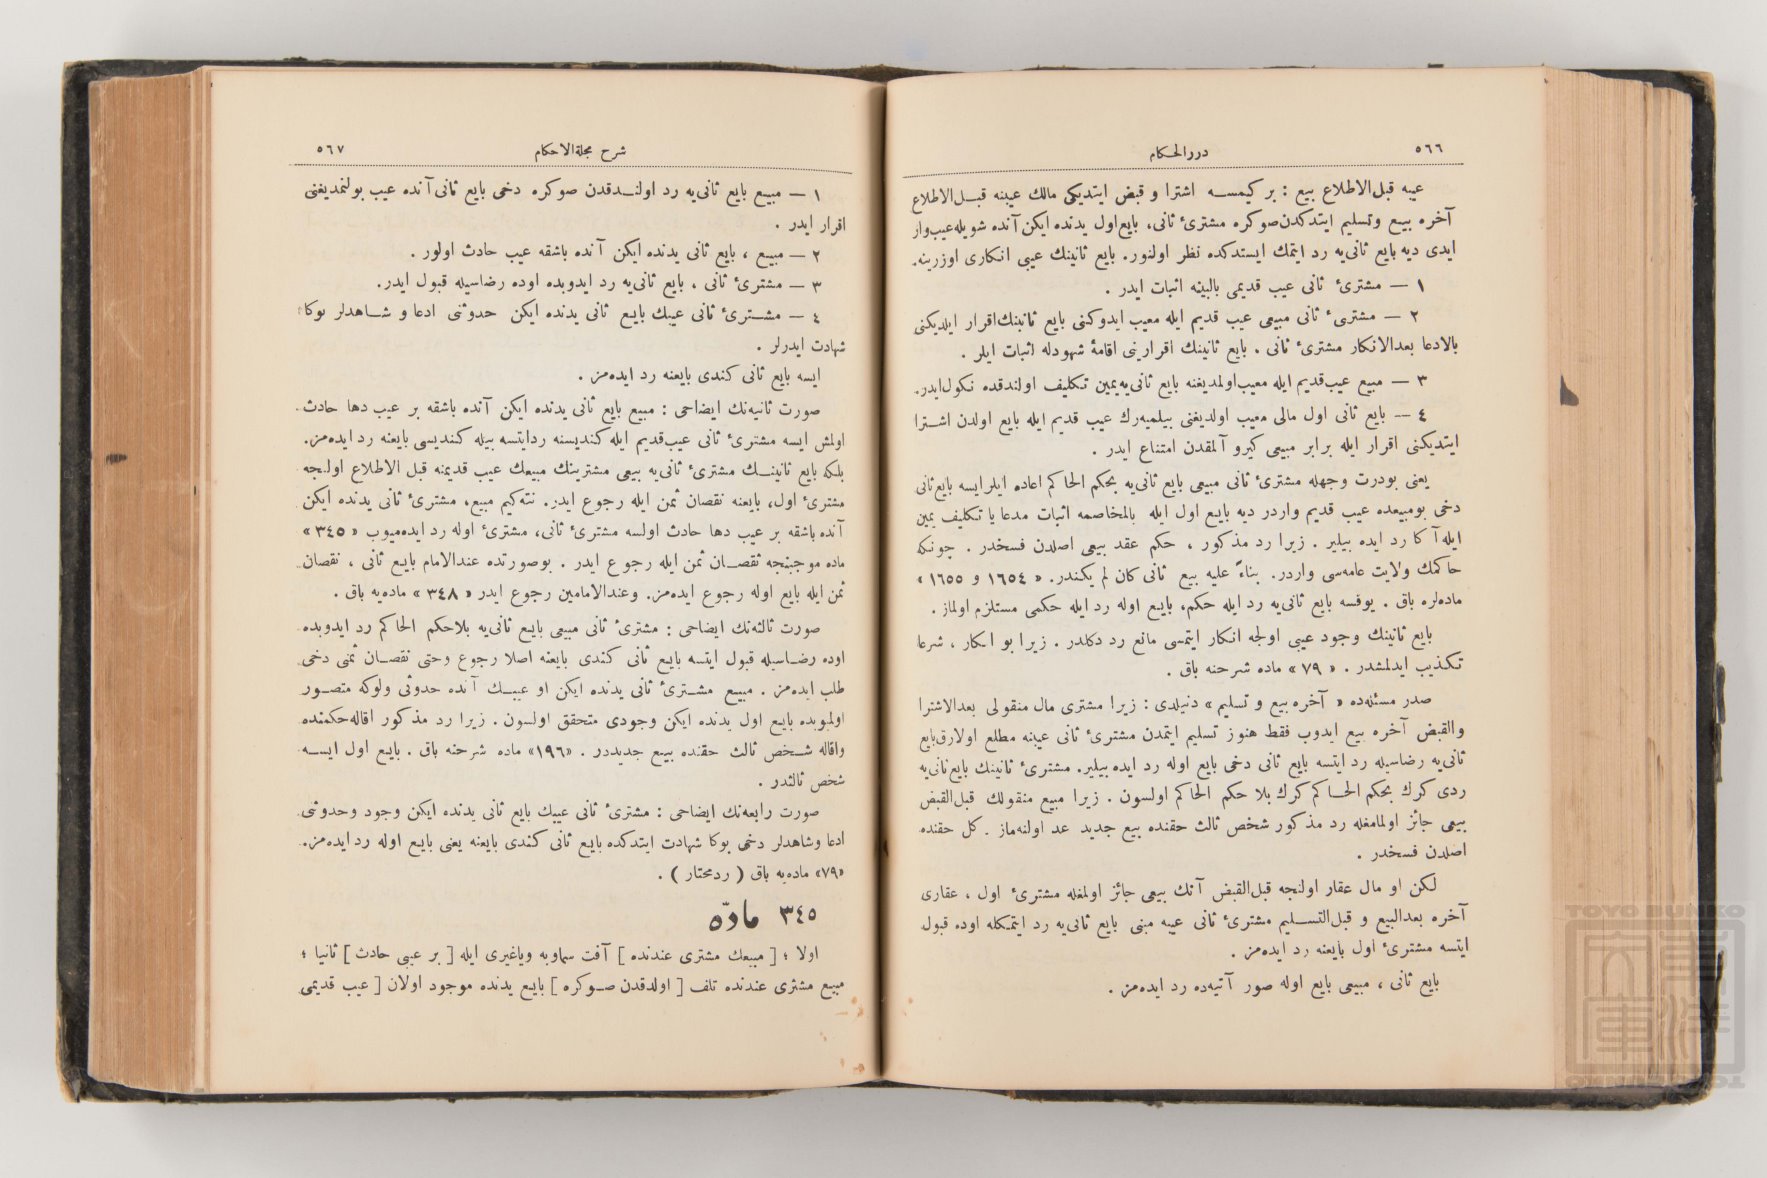 ٥٦٦
دررالحكام
عيبه قبل‌الاطلاع بيع : بر كيمسه اشترا و قبض ايتديكى مالك عيبنه قبل‌الاطلاع
آخره بيع وتسليم ايتدكدن‌صوكره مشترئ ثانى، بايع‌اول يدنده ايكن آنده شويله‌عيب‌وار
ايدى ديه بايع ثانى‌يه رد ايتمك ايستدكده نظر اولنور. بايع ثانينك عيبى انكارى اوزرينه.
١ — مشترئ ثانى عيب قديمى بالبينه اثبات ايدر .
٢ — مشترئ ثانى مبيعى عيب قديم ايله معيب ايدوكنى بايع ثانينك‌اقرار ايلديكنى
بالادعا بعدالانكار مشترئ ثانى . بايع ثانينك اقرارينى اقامهٔ شهودله اثبات ايلر .
٣ — مبيع عيب‌قديم ايله معيب‌اولمديغنه بايع ثانى‌يه‌يمين تكليف اولندقده نكول‌ايدر.
٤ — بايع ثانى اول مالى معيب اولديغنى بيلميه‌رك عيب قديم ايله بايع اولدن اشترا
ايتديكنى اقرار ايله برابر مبيعى كيرو آلمقدن امتناع ايدر .
يعنى بودرت وجهله مشترئ ثانى مبيعى بايع ثانى‌يه بحكم الحاكم اعاده ايلرايسه بايع‌ثانى
دخى بومبيعده عيب قديم واردر ديه بايع اول ايله بالمخاصمه اثبات مدعا يا تكليف يمين
ايله آكا رد ايده بيلير . زيرا رد مذكور ، حكم عقد بيعى اصلدن فسخدر . چونكه
حاكمك ولايت عامه‌سى واردر. بناءً عليه بيع ثانى كان لم يكندر. « ١٦٥٤ و ١٦٥٥ »
ماده‌لره باق . يوقسه بايع ثانى‌يه رد ايله حكم، بايع اوله رد ايله حكمى مستلزم اولماز .
بايع ثانينك وجود عيبى اولجه انكار ايتمسى مانع رد دكلدر . زيرا بو انكار ، شرعا
تكذيب ايدلمشدر . « ٧٩ » ماده شرحنه باق .
صدر مسئله‌ده « آخره بيع و تسليم » دنيلدى : زيرا مشترى مال منقولى بعدالاشترا
والقبض آخره بيع ايدوب فقط هنوز تسليم ايتمدن مشترئ ثانى عيبنه مطلع اولارق‌بايع
ثانى‌يه رضاسيله رد ايتسه بايع ثانى دخى بايع اوله رد ايده بيلير. مشترئ ثانينك بايع‌ثانى‌يه
ردى كرك بحكم الحاكم كرك بلا حكم الحاكم اولسون . زيرا مبيع منقولك قبل‌القبض
بيعى جائز اولمامغله رد مذكور شخص ثالث حقنده بيع جديد عد اولنه‌ماز . كل حقنده
اصلدن فسخدر .
لكن او مال عقار اولنجه قبل‌القبض آنك بيعى جائز اولمغله مشترئ اول ، عقارى
آخره بعدالبيع و قبل‌التسليم مشترئ ثانى عيبه مبنى بايع ثانى‌يه رد ايتمكله اوده قبول
ايتسه مشترئ اول بايعنه رد ايده‌مز .
بايع ثانى ، مبيعى بايع اوله صور آتيه‌ده رد ايده‌مز .
شرح مجلةالاحكام
٥٦٧
١ — مبيع بايع ثانى‌يه رد اولندقدن صوكره دخى بايع ثانى آنده عيب بولنمديغنى
اقرار ايدر .
٢ — مبيع ، بايع ثانى يدنده ايكن آنده باشقه عيب حادث اولور .
٣ — مشترئ ثانى ، بايع ثانى‌يه رد ايدوبده اوده رضاسيله قبول ايدر.
٤ — مشترئ ثانى عيبك بايع ثانى يدنده ايكن حدوثنى ادعا و شاهدلر بوكا
شهادت ايدرلر .
ايسه بايع ثانى كندى بايعنه رد ايده‌مز .
صورت ثانيه‌نك ايضاحى : مبيع بايع ثانى يدنده ايكن آنده باشقه بر عيب دها حادث
اولمش ايسه مشترئ ثانى عيب‌قديم ايله كنديسنه ردايتسه بيله كنديسى بايعنه رد ايده‌مز.
بلكه بايع ثانينك مشترئ ثانى‌يه بيعى مشترينك مبيعك عيب قديمنه قبل الاطلاع اولنجه
مشترئ اول، بايعنه نقصان ثمن ايله رجوع ايدر. نته‌كيم مبيع، مشترئ ثانى يدنده ايكن
آنده باشقه بر عيب دها حادث اولسه مشترئ ثانى، مشترئ اوله رد ايده‌ميوب « ٣٤٥ »
ماده موجبنجه نقصان ثمن ايله رجوع ايدر . بوصورتده عندالامام بايع ثانى ، نقصان
ثمن ايله بايع اوله رجوع ايده‌مز. وعندالامامين رجوع ايدر « ٣٤٨ » ماده‌يه باق .
صورت ثالثه‌نك ايضاحى : مشترئ ثانى مبيعى بايع ثانى‌يه بلاحكم الحاكم رد ايدوبده
اوده رضاسيله قبول ايتسه بايع ثانى كندى بايعنه اصلا رجوع وحتى نقصان ثمنى دخى
طلب ايده‌مز . مبيع مشترئ ثانى يدنده ايكن او عيبك آنده حدوثى ولوكه متصور
اولميوبده بايع اول يدنده ايكن وجودى متحقق اولسون . زيرا رد مذكور اقاله‌حكمنده
واقاله شخص ثالث حقنده بيع جديددر . «١٩٦» ماده شرحنه باق . بايع اول ايسه
شخص ثالثدر .
صورت رابعه‌نك ايضاحى : مشترئ ثانى عيبك بايع ثانى يدنده ايكن وجود وحدوثنى
ادعا وشاهدلر دخى بوكا شهادت ايتدكده بايع ثانى كندى بايعنه يعنى بايع اوله رد ايده‌مز.
«٧٩» ماده‌يه باق ( ردمحتار ) .
٣٤٥ مادّه
اولا ؛ [ مبيعك مشترى عندنده ] آفت سماويه وياغيرى ايله [ بر عيبى حادث ] ثانيا ؛
مبيع مشترى عندنده تلف [ اولدقدن صوكره ] بايع يدنده موجود اولان [ عيب قديمى
TOYO BUNKO